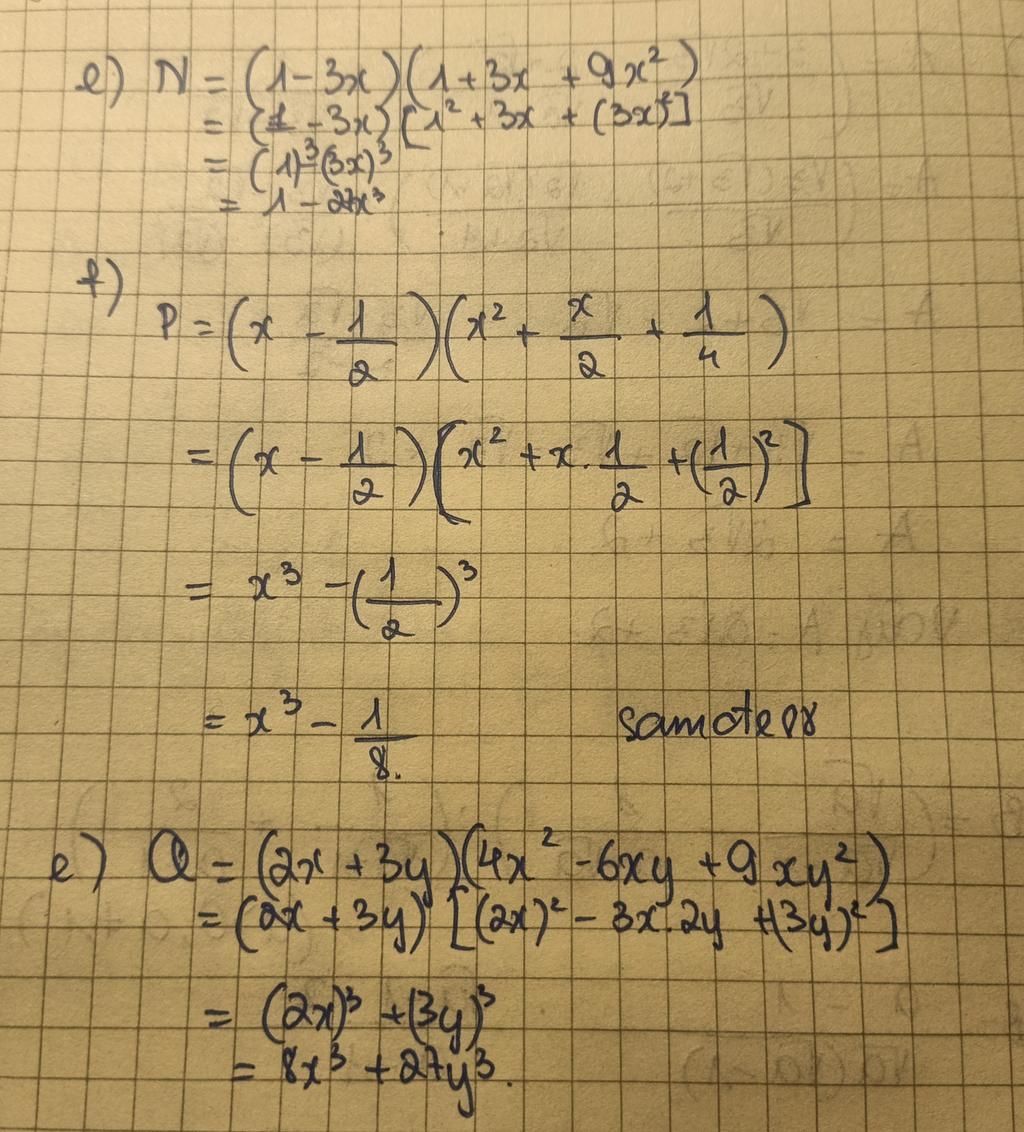 e) N = (1 - 3x)(1 + 3x + 9x²)
= (1 - 3x)[1² + 3x + (3x)²]
= (1)³-(3x)³
= 1 - 27x³
f)
P = (x - 1/2)(x² + x/2 + 1/4)
= (x - 1/2)[x² + x . 1/2 + (1/2)²]
= x³ - (1/2)³
= x³ - 1/8.
e) Q = (2x + 3y)(4x² - 6xy + 9xy²)
= (2x + 3y)[(2x)² - 3x.2y + (3y)²]
= (2x)³ + (3y)³
= 8x³ + 27y³.